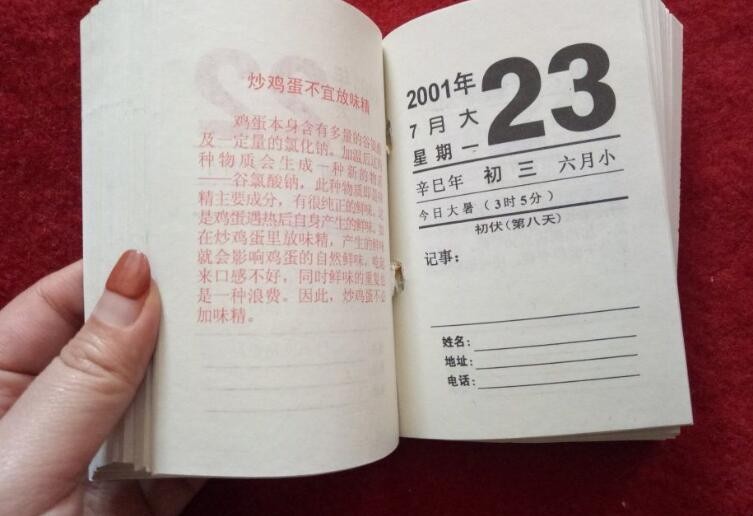 炒鸡蛋不宜放味精
鸡蛋本身含有多量的谷氨
及一定量的氯化钠。加温后这
种物质会生成一种新的物
——谷氯酸钠，此种物质即是味
精主要成分，有很纯正的鲜味。
是鸡蛋遇热后自身产生的鲜味。如
在炒鸡蛋里放味精，产生的鲜味
就会影响鸡蛋的自然鲜味，吃起
来口感不好，同时鲜味的重复也
是一种浪费。因此，炒鸡蛋不必
加味精。
2001年
7月大
星期一
23
辛巳年 初三 六月小
今日大暑（3时5分）
初伏（第八天）
记事：
姓名：
地址：
电话：